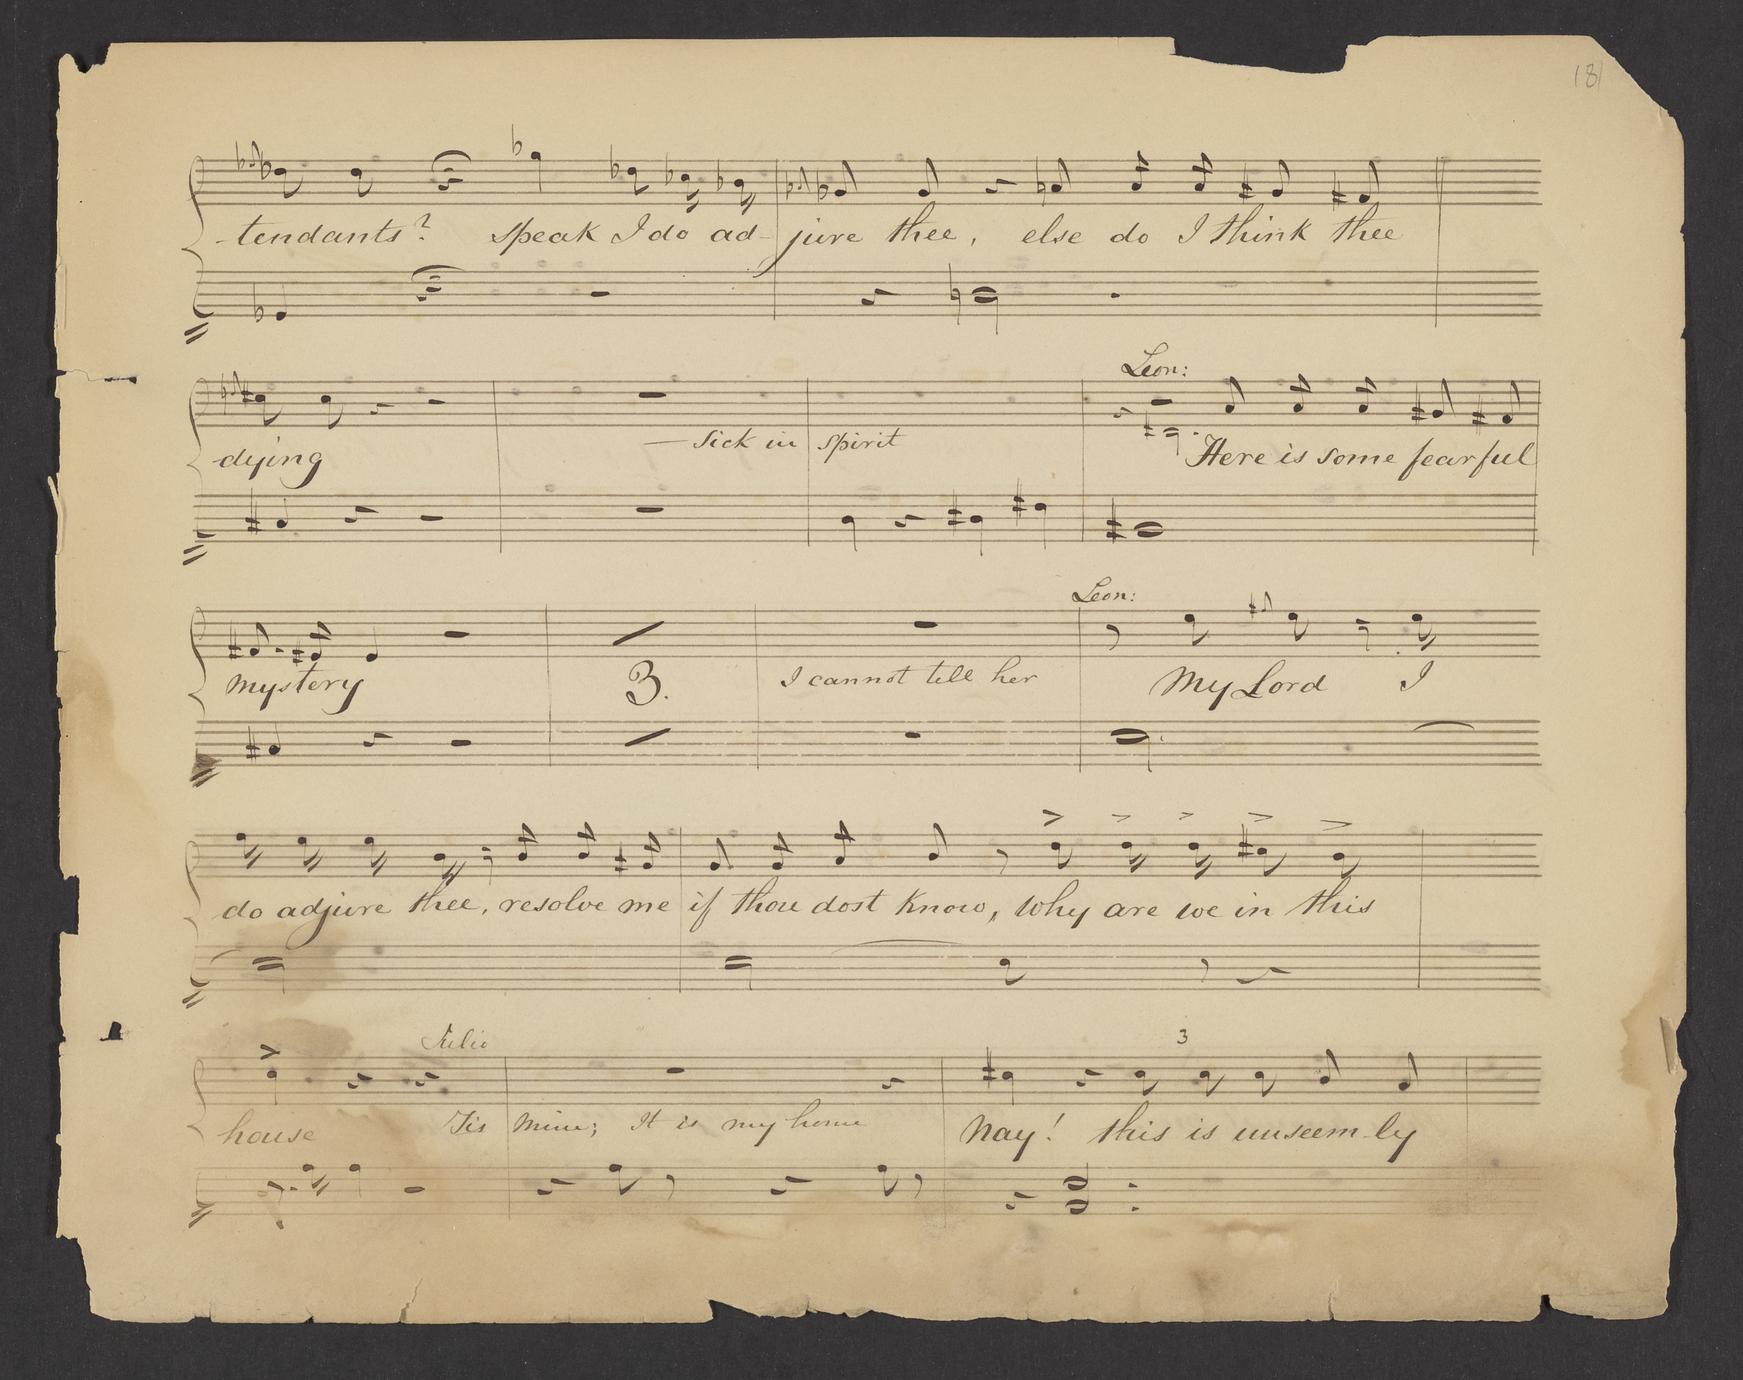 181
-tendants? speak I do ad- jure thee, else do I think thee
Leon:
dying — sick in spirit Here is some fearful
Leon:
mystery 3. I cannot tell her My Lord I
do adjure thee, resolve me if thou dost know, Why are we in this
Julio 3
house 'Tis mine; It is my home Nay! this is unseem-ly